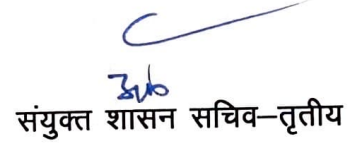 संयुक्त शासन सचिव–तृतीय